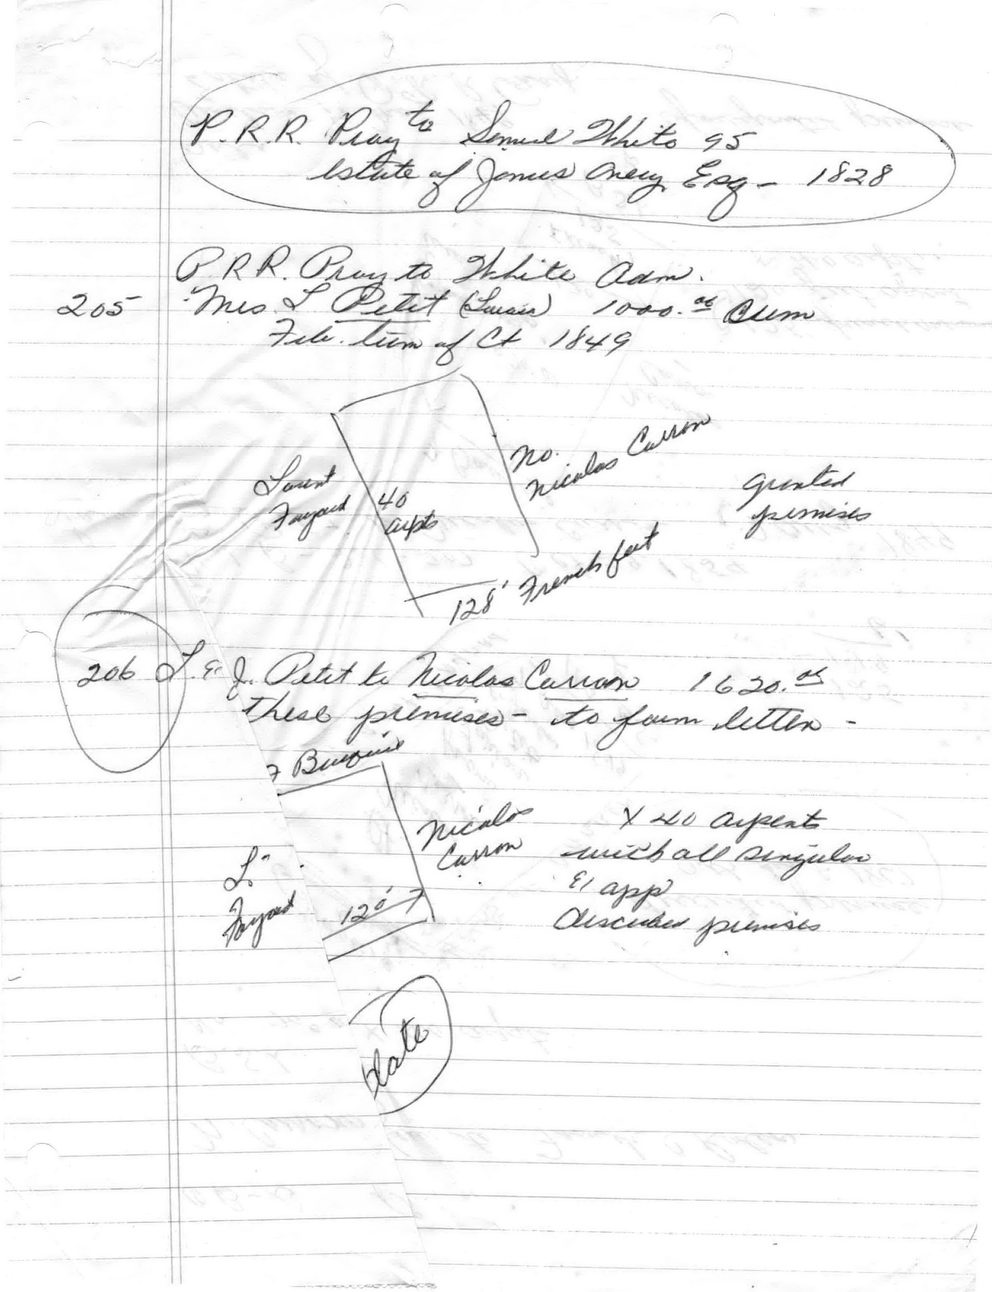 P.R.R. Pray to Samuel White 95
Estate of James Avery Esq - 1828
P.R.R. Pray to White Adm.
205 Mrs L Petit (Louisa) 1000.00 Cum
Feb. term of Ct 1849
No.
Nicolas Carron
Laurent
Fayard
40
arpts
granted
premises
128' French feet
206 L & J. Petit to Nicolas Carron 1620.00
these premises - to form letter -
Nicolas
Carron
X 40 arpents
with all singular
& app
L
Fayard
120'
described premises
plate